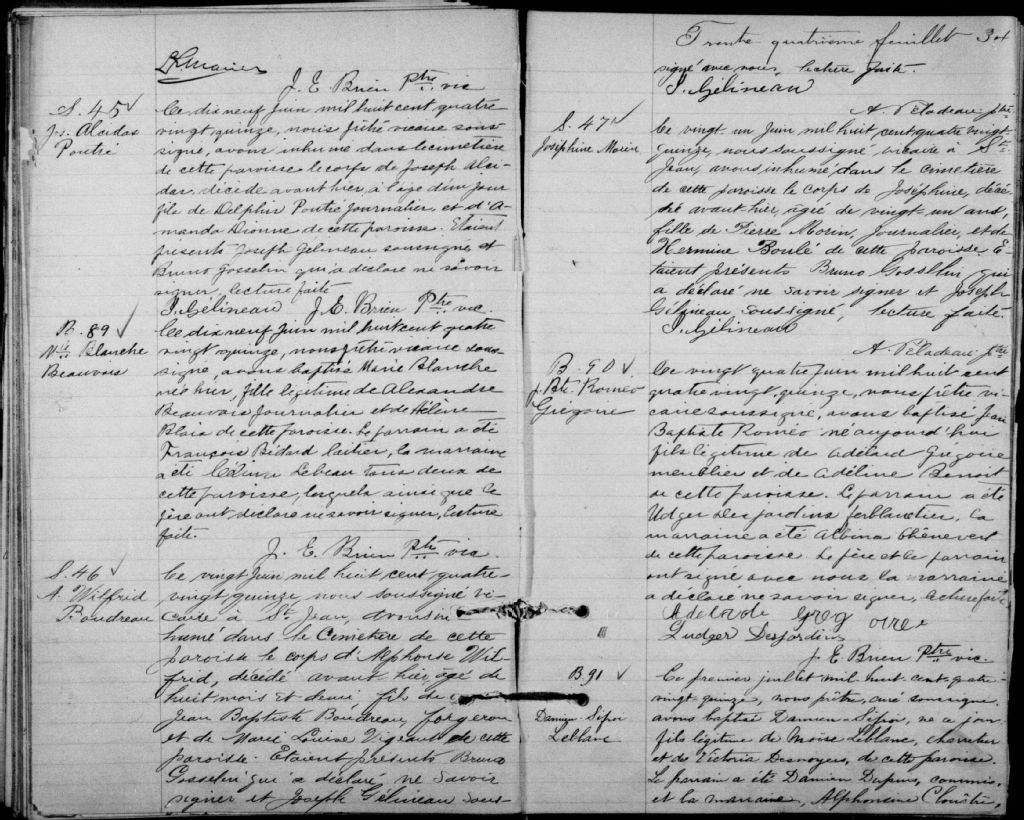 J. E. Brien Ptre vic
S. 45
Jos. Alcidas
Poutré
Ce dix neuf juin mil huit cent quatre-
vingt quinze, nous prêtre vicaire sous-
signé, avons inhumé dans le cimetière
de cette paroisse le corps de Joseph Alci-
das, décédé avant hier, à l'âge d'un jour
fils de Delphis Poutré journalier et d'A-
manda Dionne de cette paroisse. Etaient
présents Joseph Gélineau soussigné, et
Bruno Gosselin qui a déclaré ne savoir
signer, lecture faite
J. Gélineau J. E. Brien Ptre vic.
B. 89
Mie Blanche
Beauvais
Ce dix neuf juin mil huit cent quatre
vingt quinze, nous prêtre vicaire sous-
signé, avons baptisé Marie Blanche
née hier, fille légitime de Alexandre
Beauvais journalier et de Hélène
Blais de cette paroisse. Le parrain a été
François Bédard laitier, la marraine
a été Lebeau tous deux de
cette paroisse, lesquels ainsi que le
père ont déclaré ne savoir signer, lecture
faite.
J. E. Brien Ptre vic.
S. 46
A. Wilfrid
Boudreau
Ce vingt juin mil huit cent quatre-
vingt quinze nous soussigné vi-
caire à St Jean, avons in
humé dans le Cimetière de cette
paroisse le corps d'Alphonse Wil-
frid, décédé avant hier, âgé de
huit mois et demi fils de
Jean Baptiste Boudreau, forgeron
et de Marie Louise Vigeant de cette
paroisse. Étaient présents Bruno
Gosselin qui a déclaré ne savoir
signer et Joseph Gélineau sous-
Trente quatrième feuillet 34
signé avec nous, lecture faite.
J. Gélineau
A. Péladeau ptre
S. 47
Joséphine Morin
Ce vingt-un Juin mil huit cent quatre vingt-
quinze, nous soussigné vicaire à St
Jean, avons inhumé dans le cimetière
de cette paroisse le corps de Joséphine, décé-
dée avant-hier, âgée de vingt-un ans,
fille de Pierre Morin, Journalier, et de
Hermine Boulé de cette paroisse. E-
taient présents Bruno Gosselin qui
a déclaré ne savoir signer et Joseph
Gélineau soussigné, lecture faite.
J. Gélineau
A. Péladeau ptre
B. 90
J. Bte. Roméo
Grégoire
Ce vingt quatre juin mil huit cent
quatre vingt quinze, nous prêtre vi-
caire soussigné, avons baptisé Jean
Baptiste Roméo né aujourd'hui
fils légitime de Adélard Grégoire
meublier et de Adéline Benoit
de cette paroisse. Le parrain a été
Udger Desjardins ferblantier, la
marraine a été Albina Chenevert
de cette paroisse. Le père et le parrain
ont signé avec nous la marraine
a déclaré ne savoir signer, lecture faite
Adelarde Gregoire
Ludger Desjardins
J. E. Brien Ptre vic.
B. 91
Damien Sifroi
Leblanc
Ce premier juillet mil huit cent quatre-
vingt quinze, nous prêtre, curé soussigné,
avons baptisé Damien-Sifroi, né ce jour
fils légitime de Moïse Leblanc, charretier
et de Victoria Desnoyers, de cette paroisse.
Le parrain a été Damien Dupuis, commis,
et la marraine, Alphonsine Cloutre,